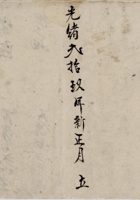 光緒弍拾玖年新正月 立